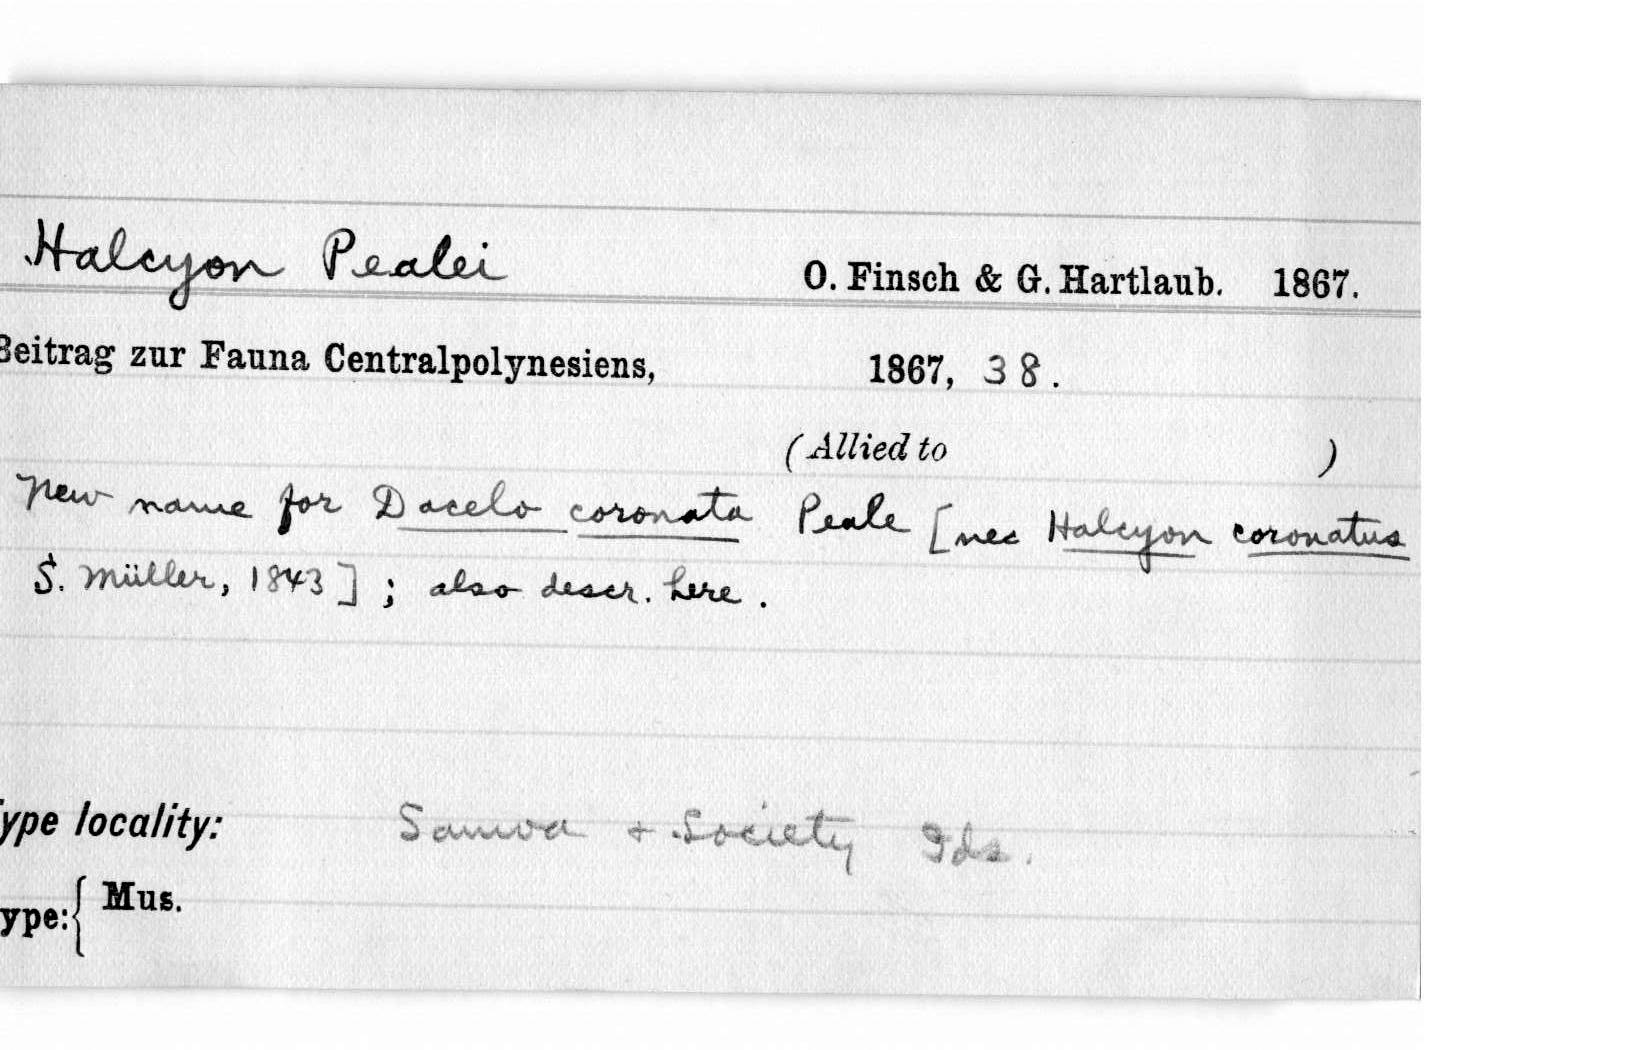 Halcyon Pealei O. Finsch & G. Hartlaub. 1867.
Beitrag zur Fauna Centralpolynesiens, 1867, 38.
(Allied to )
New name for Dacelo coronata Peale [nec Halcyon coronatus
S. Müller, 1843] ; also descr. here .
ype locality: Samoa + Society Ids.
ype: { Mus.